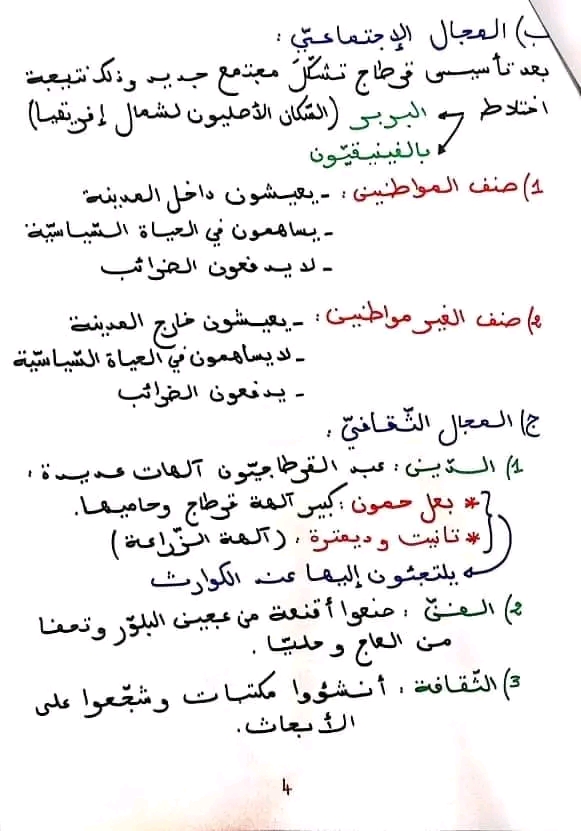 ب) المجال الإجتماعيّ :
بعد تأسيس قرطاج تشكّل مجتمع جديد وذلك نتيجة
اختلاط البربر (السّكان الأصليون لشمال إفريقيا)
بالفينيقيّون
1) صنف المواطنين : - يعيشون داخل المدينة
- يساهمون في الحياة السّياسيّة
- لا يدفعون الضرائب
2) صنف الغير مواطنين : - يعيشون خارج المدينة
- لا يساهمون في الحياة السّياسيّة
- يدفعون الضرائب
ج) المجال الثّقافيّ :
1) الدّين : عبد القرطاجيّون آلهات عديدة :
* بعل حمون : كبير آلهة قرطاج وحاميها.
* تانيت و ديمترة : (آلهة الزّراعة)
يلتجئون إليها عند الكوارث
2) الفنّ : صنعوا أقنعة من عجين البلّور وتحفا
من العاج و حليّا .
3) الثّقافة : أنشؤوا مكتبات وشجّعوا على
الأبحاث.
4